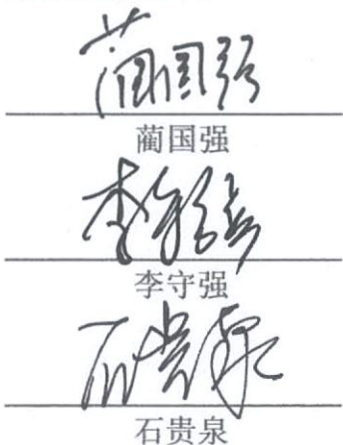 蔺国强
蔺国强
李守强
李守强
石贵泉
石贵泉